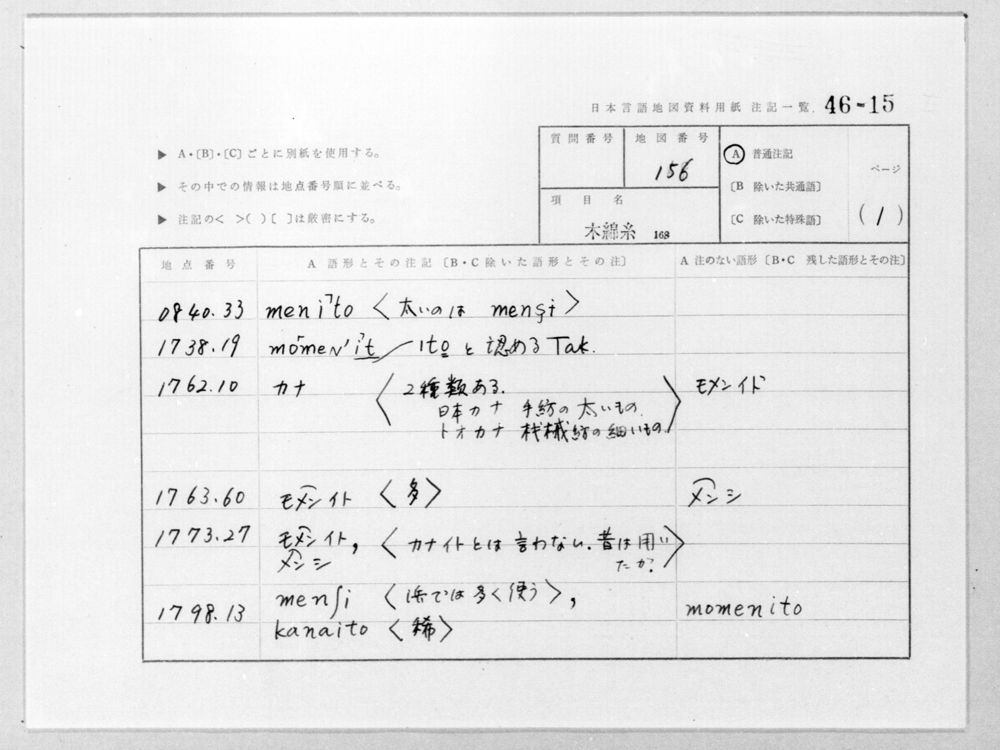 日本言語地図資料用紙 注記一覧. 46-15
▶ A・〔B〕・〔C〕ごとに別紙を使用する。
▶ その中での情報は地点番号順に並べる。
▶ 注記の< >( )[ ]は厳密にする。
質問番号
地図番号
156
項目名
木綿糸 168
Ⓐ 普通注記
〔B 除いた共通語〕
〔C 除いた特殊語〕
ページ
(1)
地点番号 A 語形とその注記〔B・C 除いた語形とその注〕 A 注のない語形〔B・C 残した語形とその注〕
0840.33 meni⌝to 〈太いのは mensï〉
1738.19 / ito と認める Tak.
1762.10 カナ 〈2種類ある. モメンイト
日本カナ 手紡の太いもの.
トオカナ 機械紡の細いもの.〉
1763.60 モメンイト 〈多〉 メンシ
1773.27 モメンイト, 〈カナイトとは言わない. 昔は用い
メンシ たか?〉
1798.13 menʃi 〈浜では多く使う〉, momenito
kanaito 〈稀〉